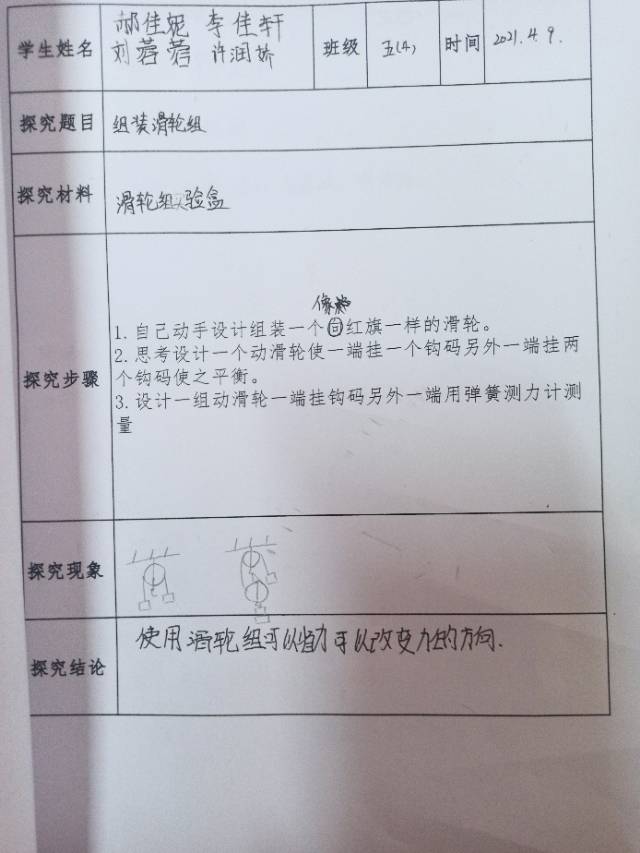 学生姓名 郝佳妮 李佳轩
刘蓉蓉 许润娇 班级 五(4) 时间 2021.4.9.
探究题目 组装滑轮组
探究材料 滑轮组实验盒
像
1. 自己动手设计组装一个向红旗一样的滑轮。
2. 思考设计一个动滑轮使一端挂一个钩码另外一端挂两
个钩码使之平衡。
探究步骤
3. 设计一组动滑轮一端挂钩码另外一端用弹簧测力计测
量
探究现象
探究结论 使用滑轮组可以省力可以改变力的方向.